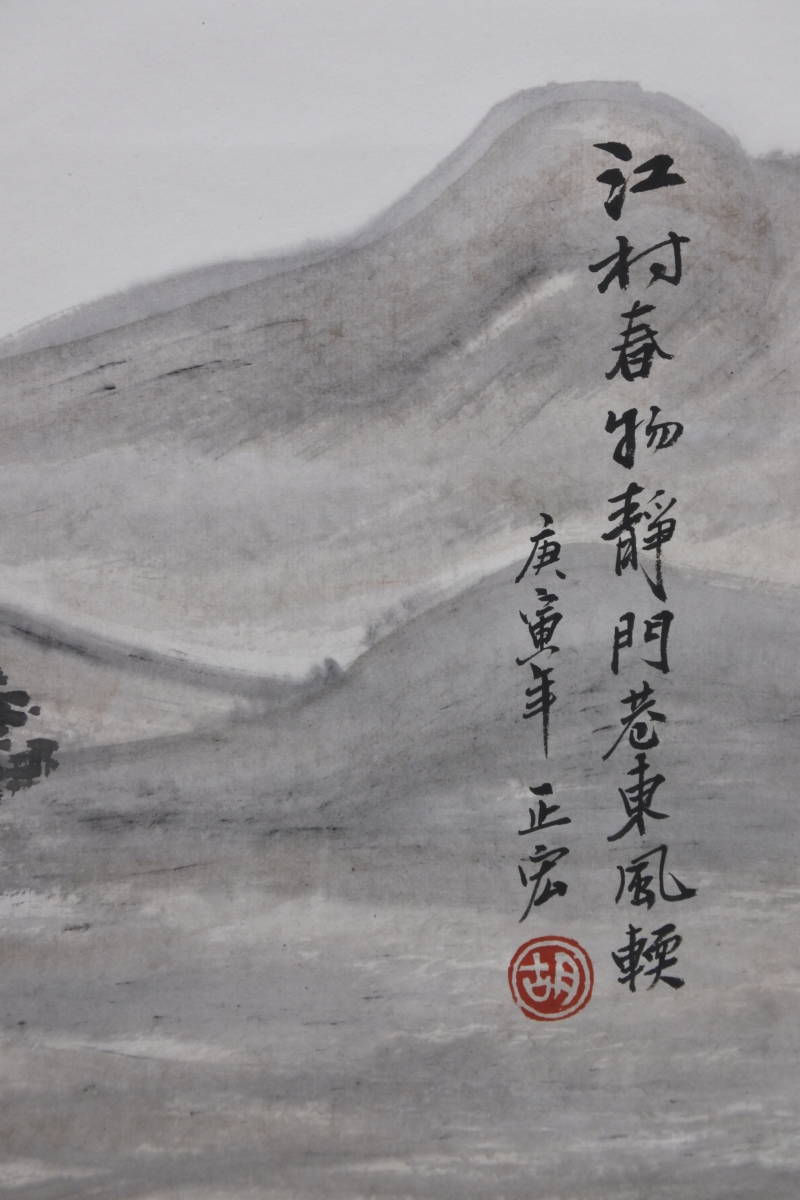 江村春物靜門巷東風輭
庚寅年 正宏
胡